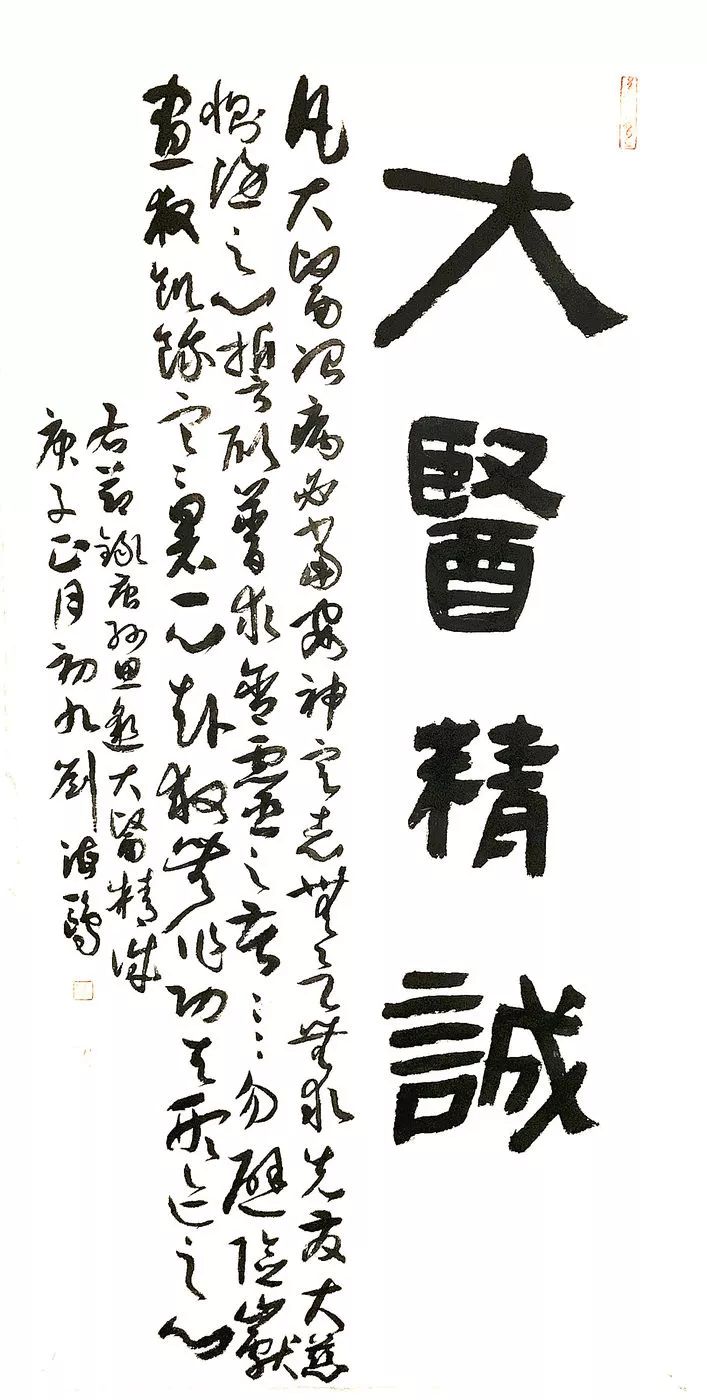 大醫精誠
凡大醫治病必當安神定志無欲無求先發大慈
惻隱之心誓願普求含靈之苦……勿避險巘
晝夜飢餓寒暑一心赴救無作功夫形迹之心
右節錄唐孫思邈大醫精誠
庚子正月初九劉海鷗